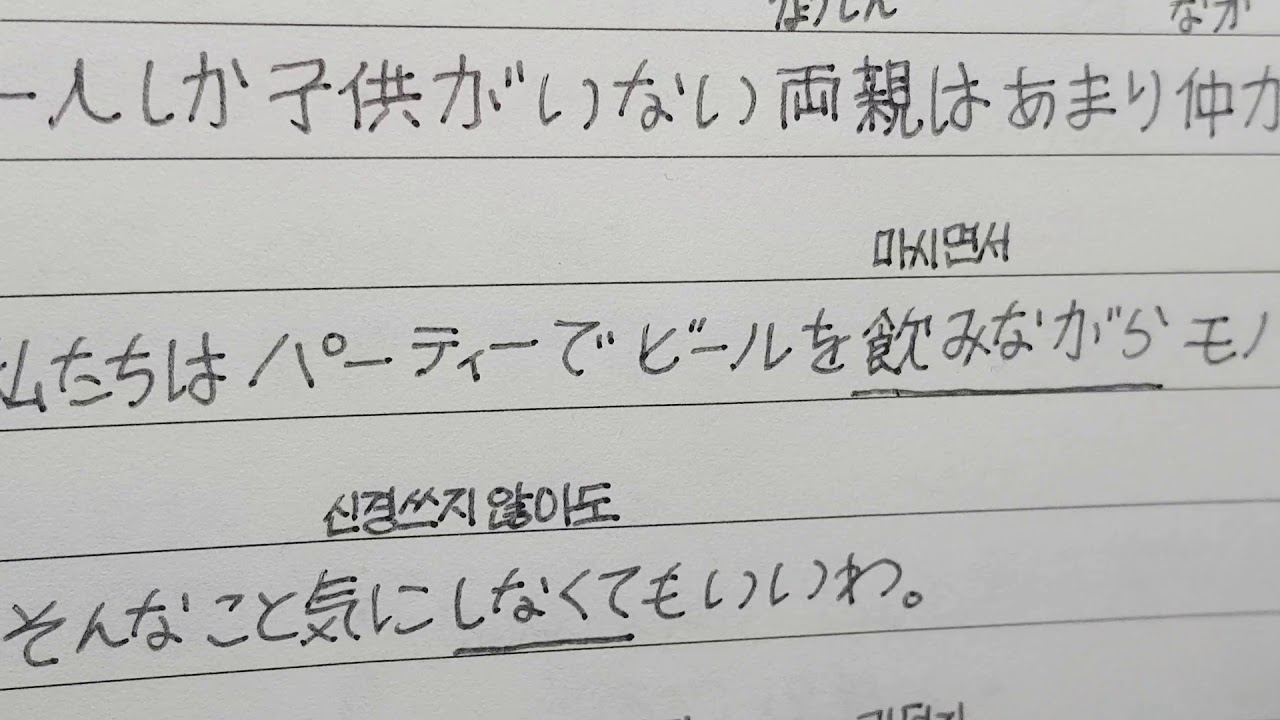 なか
一人しか子供がいない両親はあまり仲が
마시면서
私たちはパーティーでビールを飲みながらモノ
신경쓰지 않아도
そんなこと気にしなくてもいいわ。